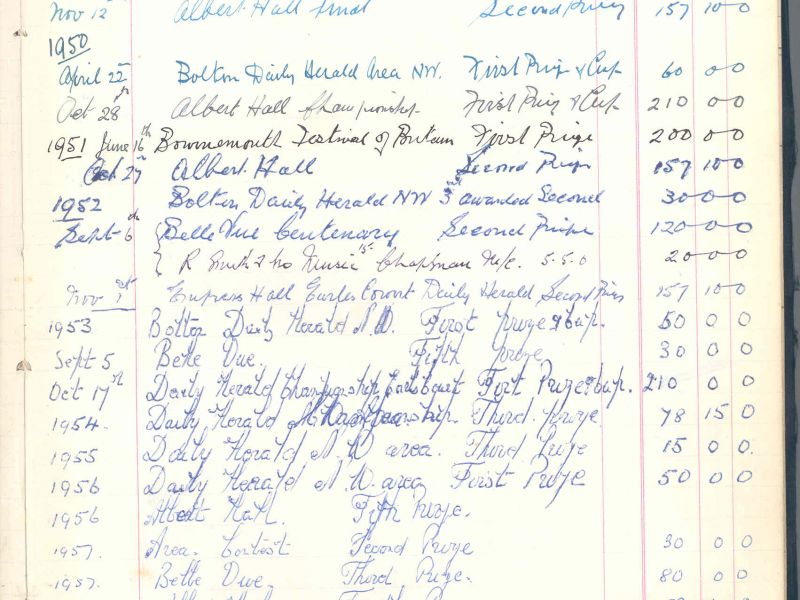 Nov 12 Albert Hall final Second Prize 157 10 0
1950
April 22 Bolton Daily Herald Area NW. First Prize & Cup 60 0 0
Oct 28th Albert Hall Championship First Prize & Cup 210 0 0
1951 June 16th Bournemouth Festival of Britain First Prize 200 0 0
Oct 27 Albert Hall Second Prize 157 10 0
1952 Bolton Daily Herald NW 3rd awarded Second 30 0 0
Sept 6th Belle Vue Centenary Second Prize 120 0 0
R Smith & Co Music Chapman M/c. 5.5.0 20 0 0
Nov 1st Empress Hall Earles Court Daily Herald Second Prize 157 10 0
1953 Bolton Daily Herald N.W. First prize & Cup. 50 0 0
Sept 5 Belle Vue. Fifth prize 30 0 0
Oct 17th Daily Herald Championship Earls Court First Prize & Cup. 210 0 0
1954. Daily Herald Third prize 78 15 0
1955 Daily Herald N.W area. Third Prize 15 0 0.
1956 Daily Herald N.W. area First Prize 50 0 0
1956 Albert Hall. Fifth Prize.
1957. Area. Contest Second Prize 30 0 0
1957. Belle Vue. Third Prize. 80 0 0